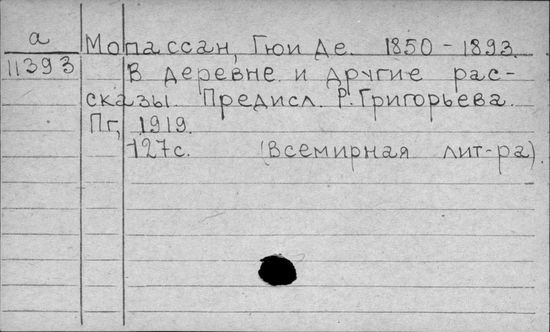 а
11393
Мопассан, Гюи де. 1850 - 1893.
В деревне и другие рас-
сказы. Предисл. Р. Григорьева.
Пг, 1919.
127с. (Всемирная лит-ра).